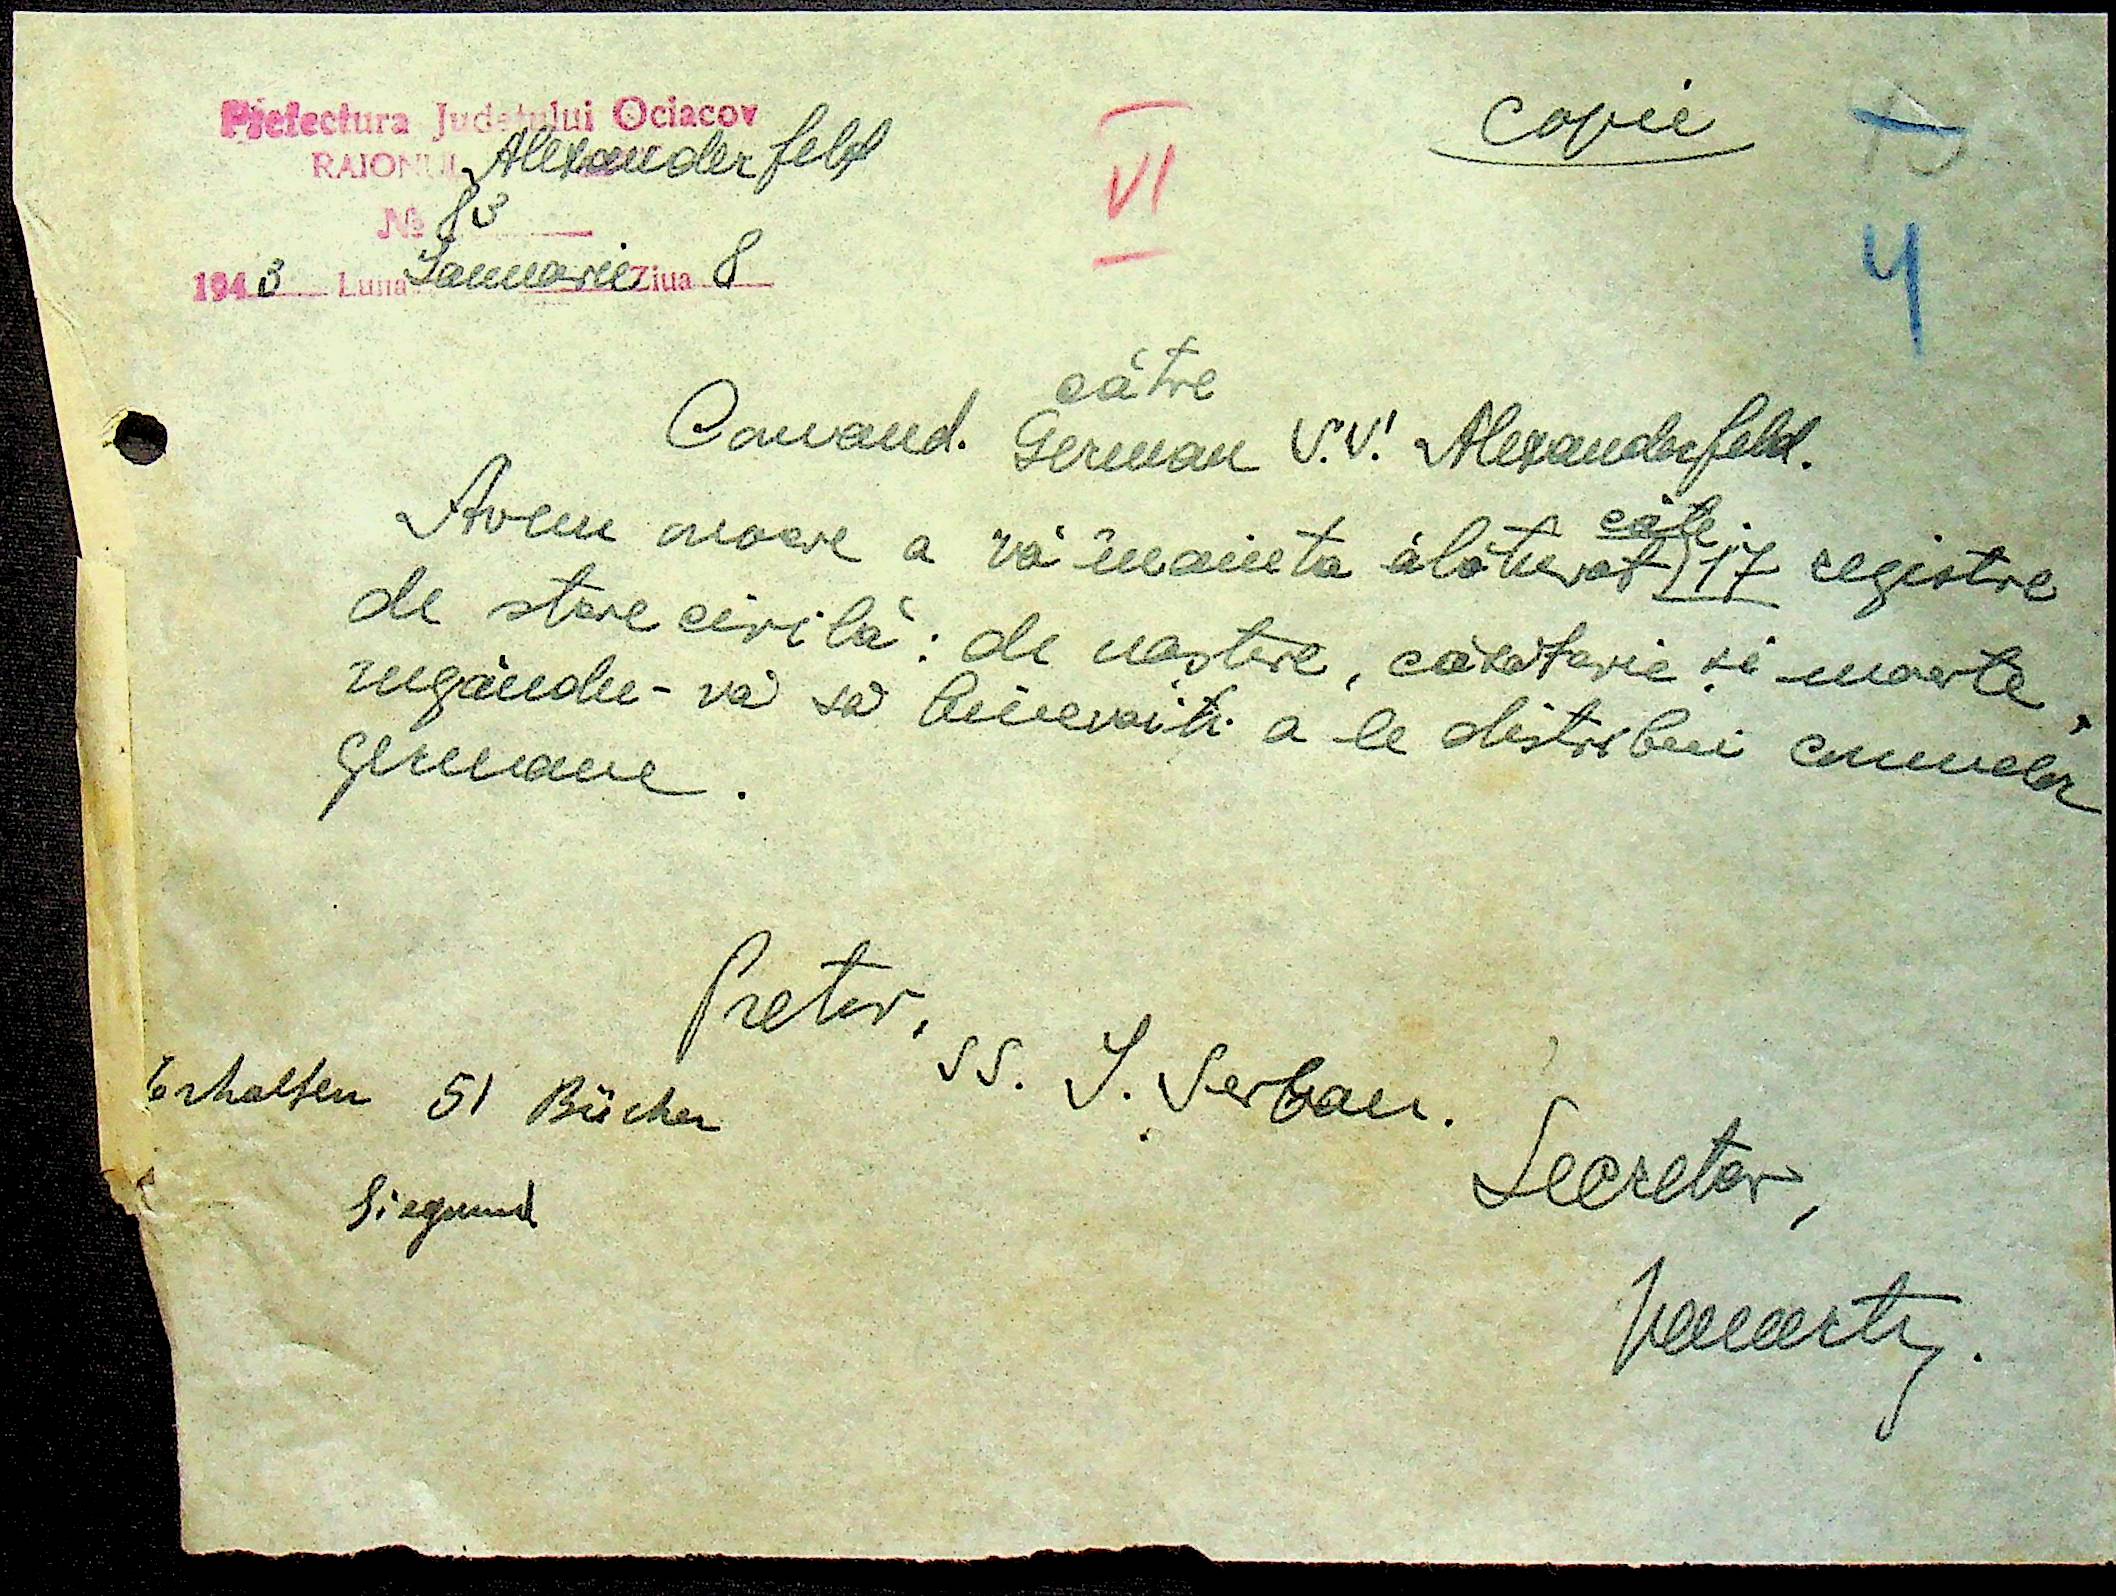 Prefectura Județului Ociacov
RAIONUL Alexanderfeld
№ 83
1943 Luna Ianuarie Ziua 8
VI
Copie
4
către
Comand. German V.V. Alexanderfeld.
Avem onoare a vă înainta alăturat câte 17 registre
de stare civilă: de naștere, căsătorie și moarte,
rugându-vă să binevoiți a le distribui comunelor
germane.
Pretor,
ss. I. Șerban.
Erhalten 51 Bücher
Siegmund
Secretar,